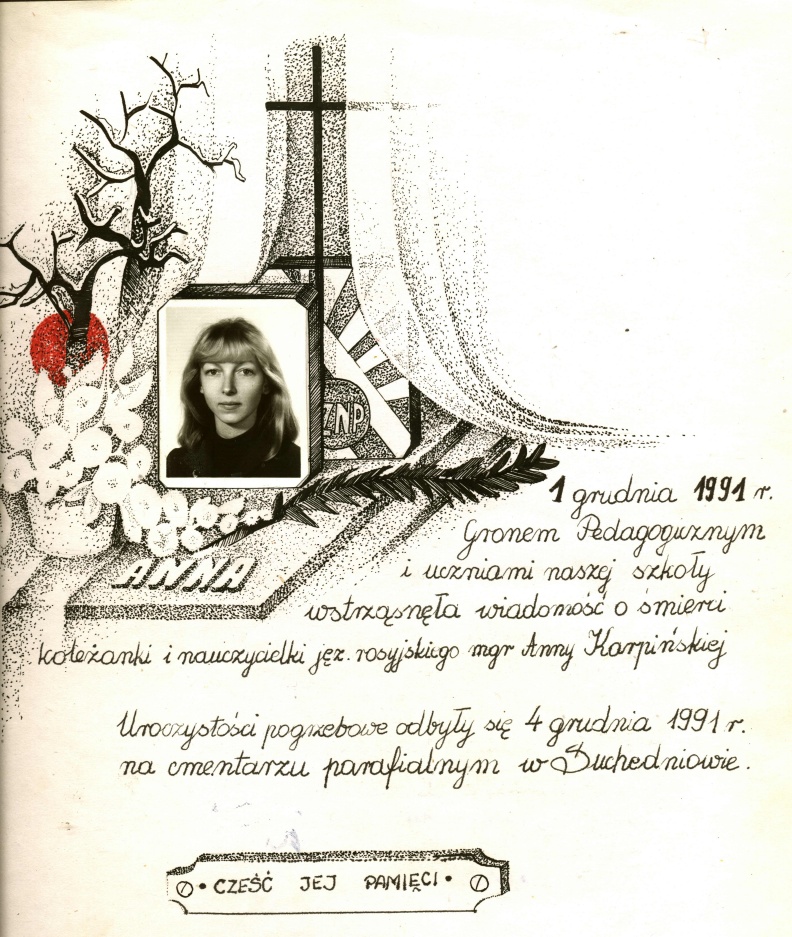 ZNP
ANNA
1 grudnia 1991 r.
Gronem Pedagogicznym
i uczniami naszej szkoły
wstrząsnęła wiadomość o śmierci
koleżanki i nauczycielki jęz. rosyjskiego mgr Anny Karpińskiej
Uroczystości pogrzebowe odbyły się 4 grudnia 1991 r.
na cmentarzu parafialnym w Suchedniowie.
• CZEŚĆ JEJ PAMIĘCI •